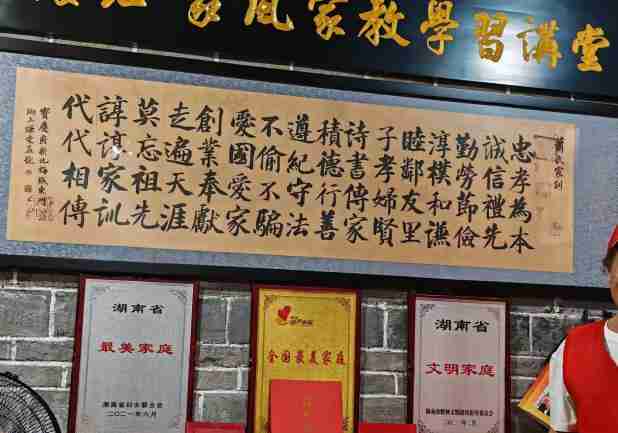 家風家教學習講堂
蕭氏家訓
忠孝為本
誠信禮先
勤勞節儉
淳樸和謙
睦鄰友里
子孝婦賢
詩書傳家
積德行善
遵紀守法
不偷不騙
愛國愛家
創業奉獻
走遍天涯
莫忘祖先
諄諄家訓
代代相傳
湖南省
最美家庭
湖南省妇女联合会
二〇二一年六月
全国最美家庭
湖南省
文明家庭